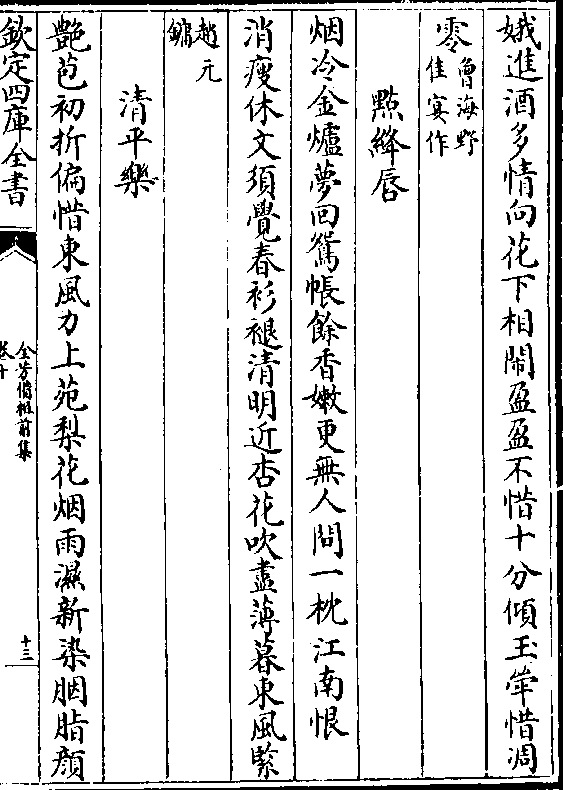 娥進酒多情向花下相鬧盈盈不惜十分傾玉斝惜凋
零曾海野
佳宴作
點絳唇
烟冷金爐夢回鴛帳餘香嫩更無人問一枕江南恨
消瘦休文須覺春衫褪清明近杏花吹盡薄暮東風緊
趙元
鎮
清平樂
艷苞初折偏惜東風力上苑梨花烟雨濕新染胭脂顔
欽定四庫全書
全芳備祖前集
卷十
十三